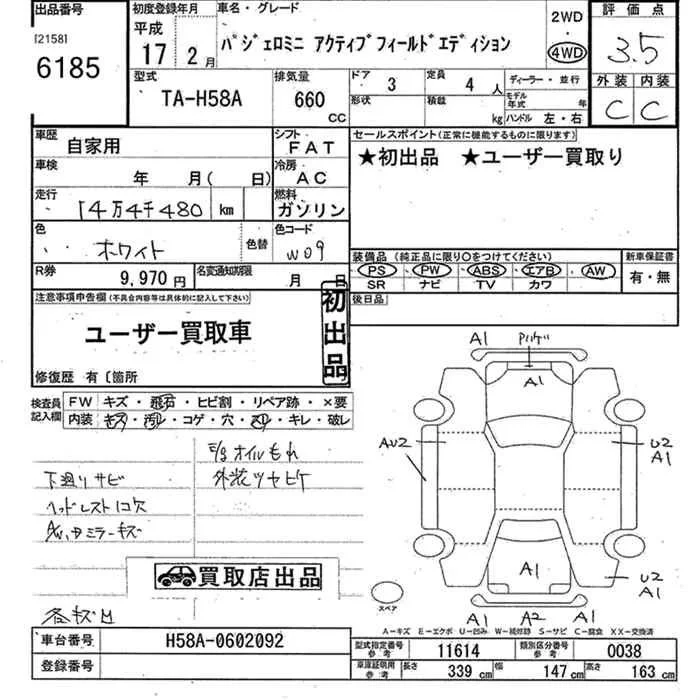 出品番号 初度登録年月 車名・グレード 2WD 評価点
[2158] 平成 ・
6185 17 2月 パジェロミニ アクティブフィールドエディション 4WD 3.5
型式 排気量 ドア 3 定員 4人 ディーラー・並行 外装 内装
TA-H58A 660 CC 形状 積載 kg モデル年式 年 C C
ハンドル 左・右
車歴 自家用 シフト FAT セールスポイント(正常に機能するものに限ります)
車検 年 月( 日) 冷房 AC ★初出品 ★ユーザー買取り
走行 14万4千480 km 燃料 ガソリン
色 ホワイト 色替 色コード W09
装備品(純正品に限り○をつけてください) 新車保証書
R券 9,970円 名変通知期限 月 日 PS・PW・ABS・エアB・AW 有・無
SR ナビ TV カワ
注意事項申告欄(不具合内容等は具体的に記入して下さい) 初出品 後日品
ユーザー買取車
修復歴 有〔箇所
検査員記入欄 FW キズ・飛石・ヒビ割・リペア跡・×要
内装 キズ・汚レ・コゲ・穴・ヌレ・キレ・破レ
オイルもれ
下廻りサビ 外装ツヤビケ
ヘッドレスト1コ欠
ミラーキズ
買取店出品
各キズ凹
A1
A1
AU2 U2
A1
A1 U2
A1
スペア A1 A2 A1
A-キズ E-エクボ U-凹み W-補修跡 S-サビ C-腐食 XX-交換済
車台番号 H58A-0602092 型式指定番号 参考 11614 類別区分番号 参考 0038
登録番号 車庫証明用 参考 長さ 339cm 幅 147cm 高さ 163cm